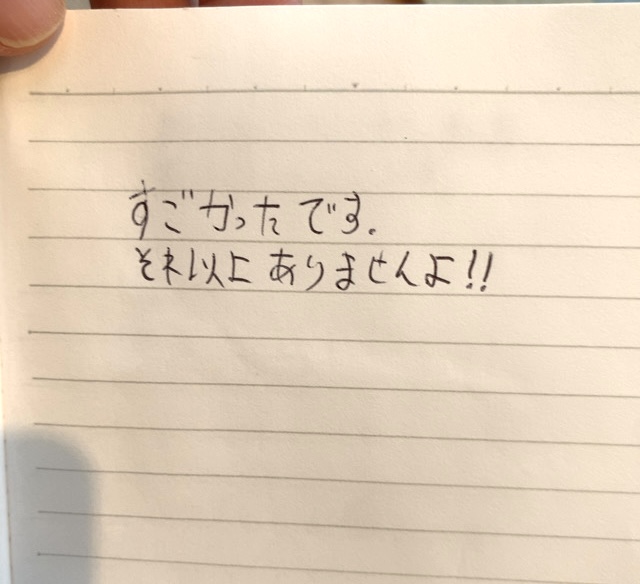 すごかったです.
それ以上ありませんよ!!